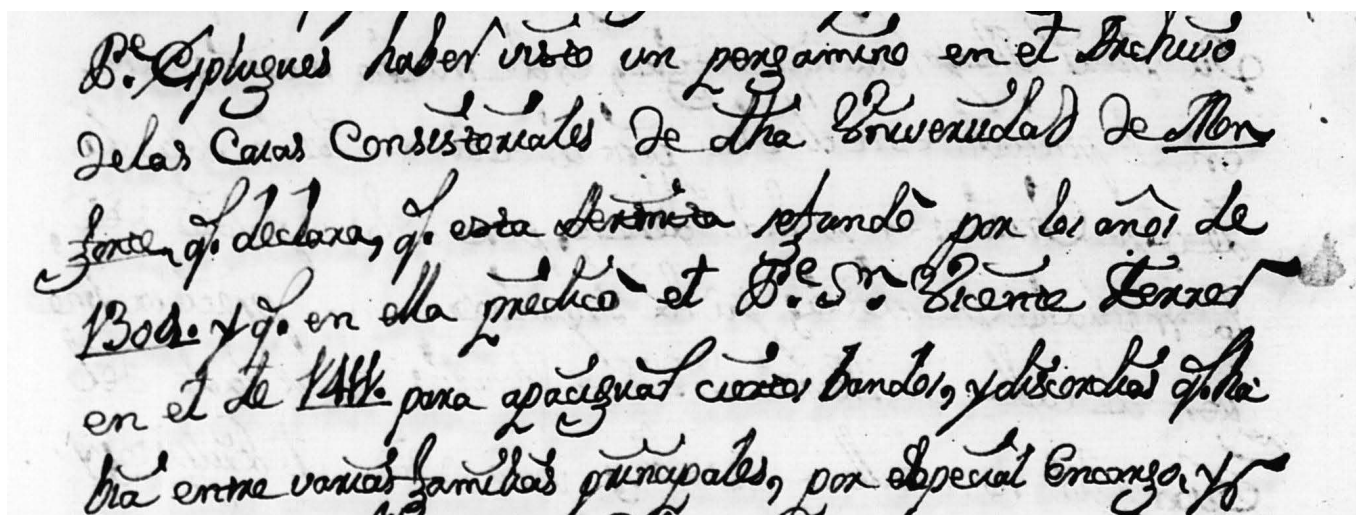 Pe. Esplugues haber visto un pergamino en el Archivo
de las Casas Consistoriales de dha Vniversidad de Mon
forte, q.e declara, q.e esta Hermita se fundó por los años de
130 y q.e en ella predicó el Pe. Sn. Vicente Ferrer
en el de 1411. para apaciguar ciertos bandos, y discordias q.e ha
bia entre varias familias principales, por especial Encargo, y